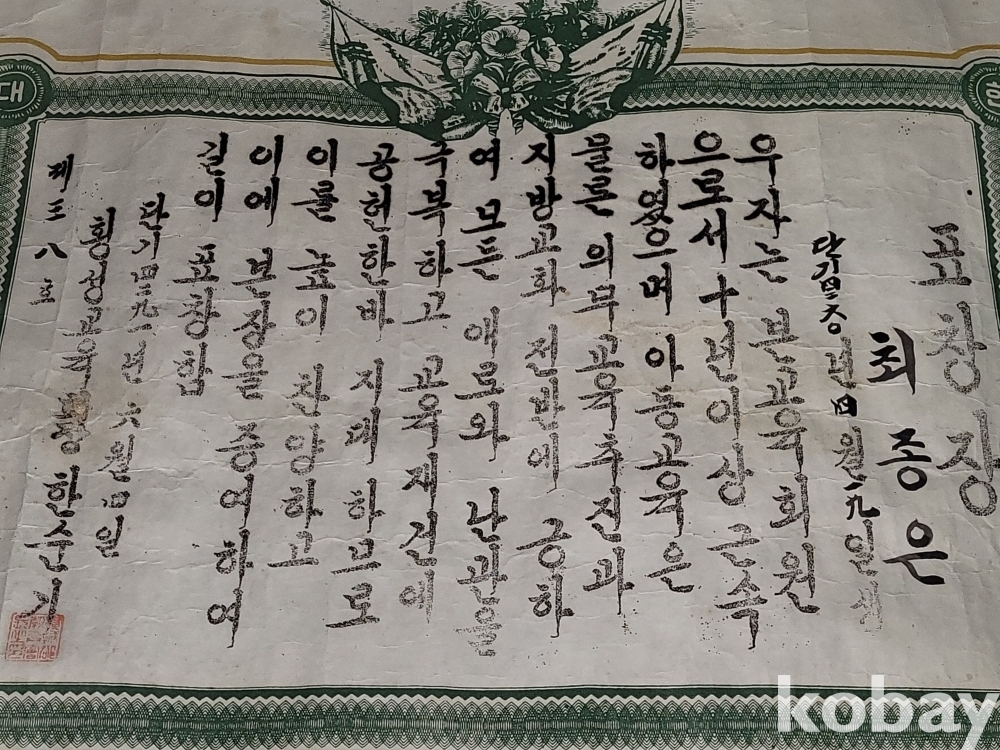 표창장
최종은
년四월一九일생
우자는 본교육회원
으로서 十년이상 근속
하였으며 아동교육은
물론 의무교육추진과
지방교화 전반에 긍하
여 모든 애로와 난관을
극복하고 교육재건에
공헌한바 지대하므로
이를 높이 찬양하고
이에 본장을 증여하여
길이 표창함
단기四二九一년 六월四일
횡성교육 한순기
제三八호
대
kobay